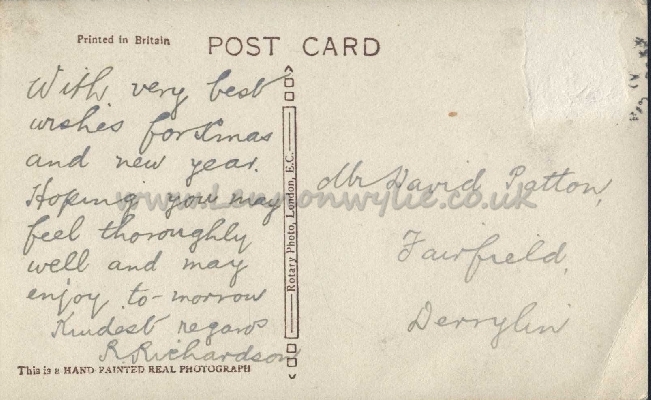 Printed in Britain
POST CARD
With very best
wishes for Xmas
and new year.
Hoping you may
feel thoroughly
well and may
enjoy to-morrow
Kindest regards
R. Richardson
This is a HAND PAINTED REAL PHOTOGRAPH
Rotary Photo, London, E.C.
Mr David Patton,
Fairfield,
Derrylin
www.Lennonwylie.co.uk